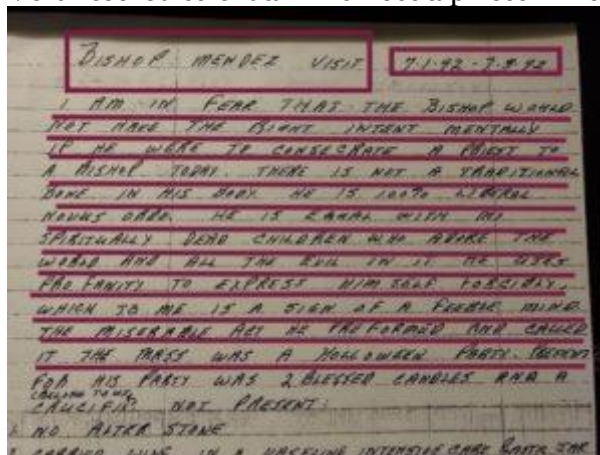 BISHOP MENDEZ VISIT 7-1-92 - 7-9-92
I AM IN FEAR THAT THE BISHOP WOULD
NOT HAVE THE RIGHT INTENT MENTALLY
IF HE WERE TO CONSECRATE A PRIEST TO
A BISHOP TODAY. THERE IS NOT A TRADITIONAL
BONE IN HIS BODY. HE IS 100% LIBERAL
NOVUS ORDO. HE IS EQUAL WITH MY
SPIRITUALLY DEAD CHILDREN WHO ADORE THE
WORLD AND ALL THE EVIL IN IT HE USES
PROFANITY TO EXPRESS HIMSELF FORCIBLY,
WHICH TO ME IS A SIGN OF A FEEBLE MIND.
THE MISERABLE ACT HE PREFORMED AND CALLED
IT THE MASS WAS A HOLLOWEEN PARTY. PRESENT
FOR HIS PARTY WAS 2 BLESSED CANDLES AND A
CRUCIFIX NOT PRESENT:
1. NO ALTER STONE
CARRIED WINE IN A VASELINE INTENSIVE CARE JAR